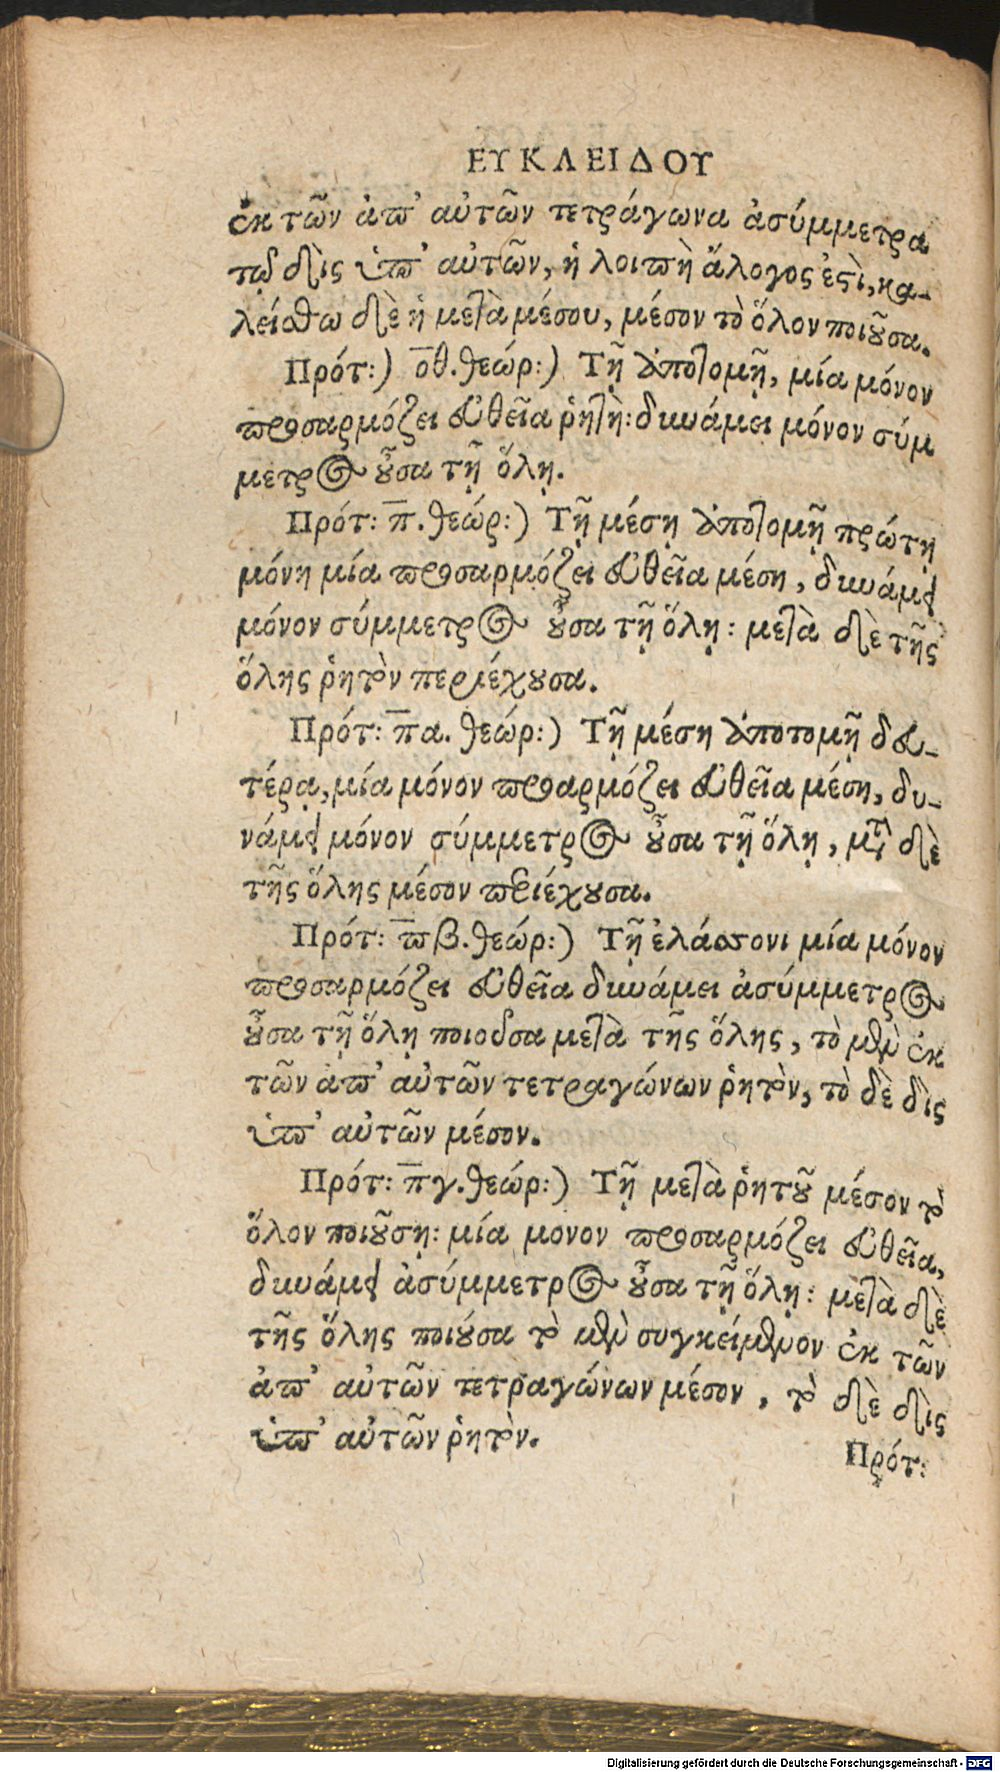 ΕΥΚΛΕΙΔΟΥ
ἐκ τῶν ἀπ' αὐτῶν τετράγωνα ἀσύμμετρα
τῷ δὶς ὑπ' αὐτῶν, ἡ λοιπὴ ἄλογος ἐστὶ, κα-
λείσθω δὲ ἡ μετὰ μέσου, μέσον τὸ ὅλον ποιοῦσα.
Πρότ:) ο̅θ. θεώρ:) Τῇ ἀποτομῇ, μία μόνον
προσαρμόζει εὐθεῖα ῥητὴ: δυνάμει μόνον σύμ
μετρος οὖσα τῇ ὅλῃ.
Πρότ: π̅. θεώρ:) Τῇ μέσῃ ἀποτομῇ πρώτῃ
μόνη μία προσαρμόζει εὐθεῖα μέση, δυνάμει
μόνον σύμμετρος οὖσα τῇ ὅλῃ: μετὰ δὲ τῆς
ὅλης ῥητὸν περιέχουσα.
Πρότ: π̅α. θεώρ:) Τῇ μέση ἀποτομῇ δευ-
τέρᾳ, μία μόνον προαρμόζει εὐθεῖα μέση, δυ-
νάμει μόνον σύμμετρος οὖσα τῇ ὅλῃ, μετὰ δὲ
τῆς ὅλης μέσον περιέχουσα.
Πρότ: π̅β. θεώρ:) Τῇ ἐλάσσονι μία μόνον
προσαρμόζει εὐθεῖα δυνάμει ἀσύμμετρος
οὖσα τῇ ὅλῃ ποιοῦσα μετὰ τῆς ὅλης, τὸ μὲν ἐκ
τῶν ἀπ' αὐτῶν τετραγώνων ῥητὸν, τὸ δὲ δὶς
ὑπ' αὐτῶν μέσον.
Πρότ: π̅γ. θεώρ:) Τῇ μετὰ ῥητοῦ μέσον τὸ
ὅλον ποιοῦσῃ: μία μονον προσαρμόζει εὐθεῖα,
δυνάμει ἀσύμμετρος οὖσα τῇ ὅλῃ: μετὰ δὲ
τῆς ὅλης ποιούσα τὸ μὲν συγκείμενον ἐκ τῶν
ἀπ' αὐτῶν τετραγώνων μέσον, τὸ δὲ δὶς
ὑπ' αὐτῶν ῥητὸν.
Πρότ:
Digitalisierung gefördert durch die Deutsche Forschungsgemeinschaft - DFG